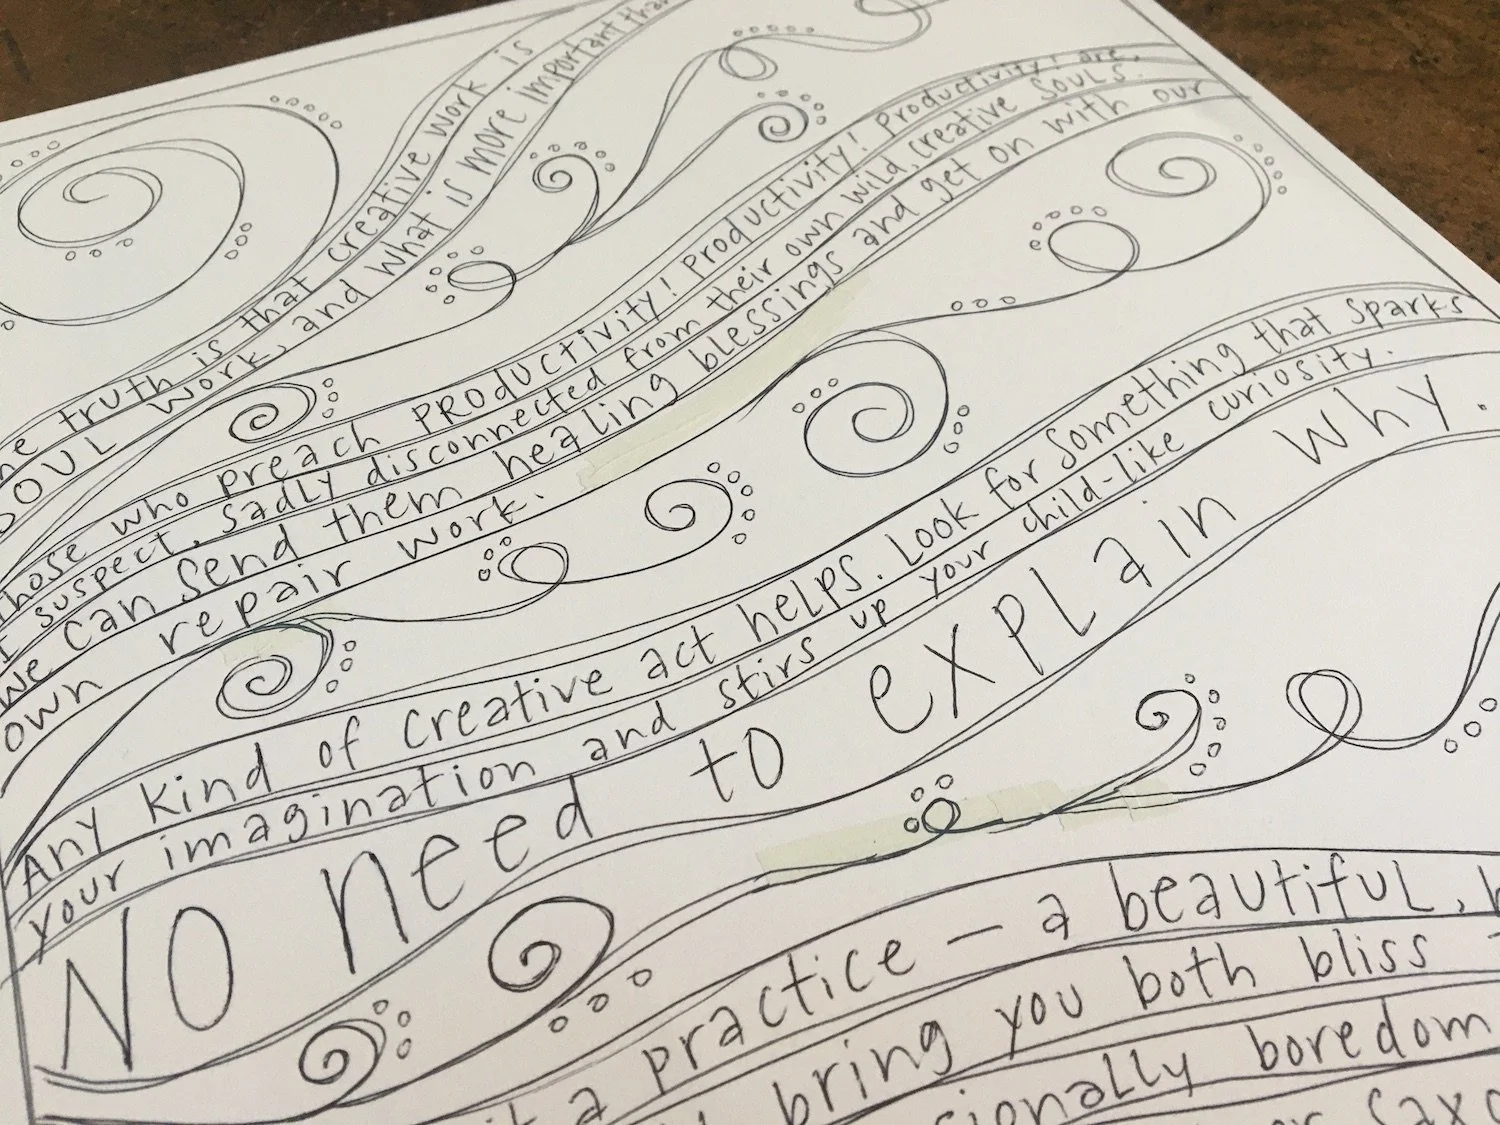 he truth is that creative work is
SOUL work, and what is more important than
those who preach PRODUCTIVITY! Productivity! Productivity! Productivity! are,
I suspect, sadly disconnected from their own wild, creative souls.
We can send them healing blessings and get on with our
own repair work.
Any kind of creative act helps. Look for something that sparks
your imagination and stirs up your child-like curiosity.
NO need to explain why.
a practice — a beautiful,
bring you both bliss
boredom